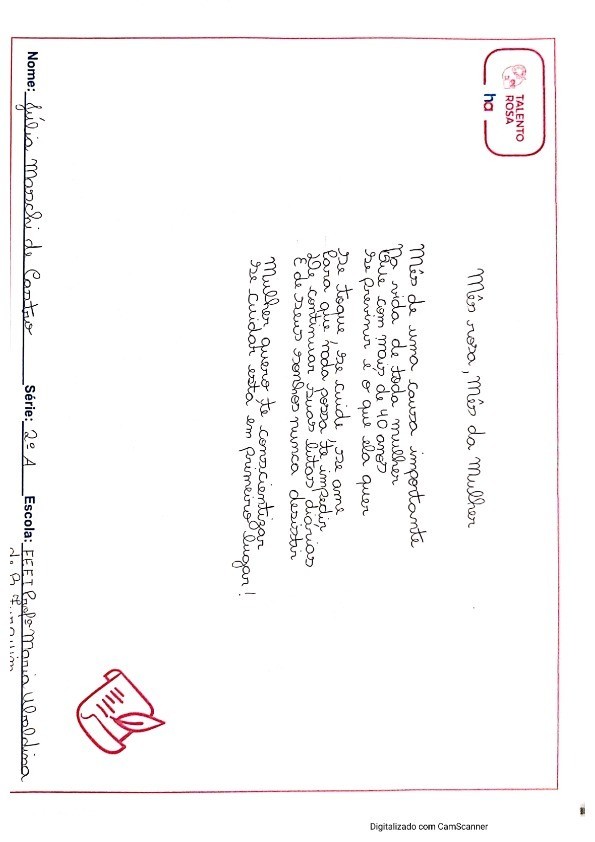 TALENTO
ROSA
ha
Mês rosa, Mês da Mulher
Mês de uma causa importante
Na vida de toda mulher
Que com mais de 40 anos
Se previnir é o que ela quer
Se toque, se cuide, se ame
Para que nada possa te impedir
De continuar suas lutas diárias
E de seus sonhos nunca desistir
Mulher, quero te conscientizar
Se cuidar está em primeiro lugar!
Nome: Júlia Marschi de Castro Série: 2º A Escola: EEEI Profª Maria Ubaldina
de
Digitalizado com CamScanner